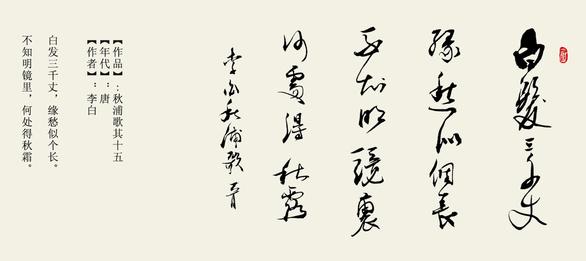 白髮三千丈
緣愁似個長
不知明鏡裏
何處得秋霜
李白秋浦歌
【作品】:秋浦歌其十五
【年代】:唐
【作者】:李白
白发三千丈，缘愁似个长。
不知明镜里，何处得秋霜。